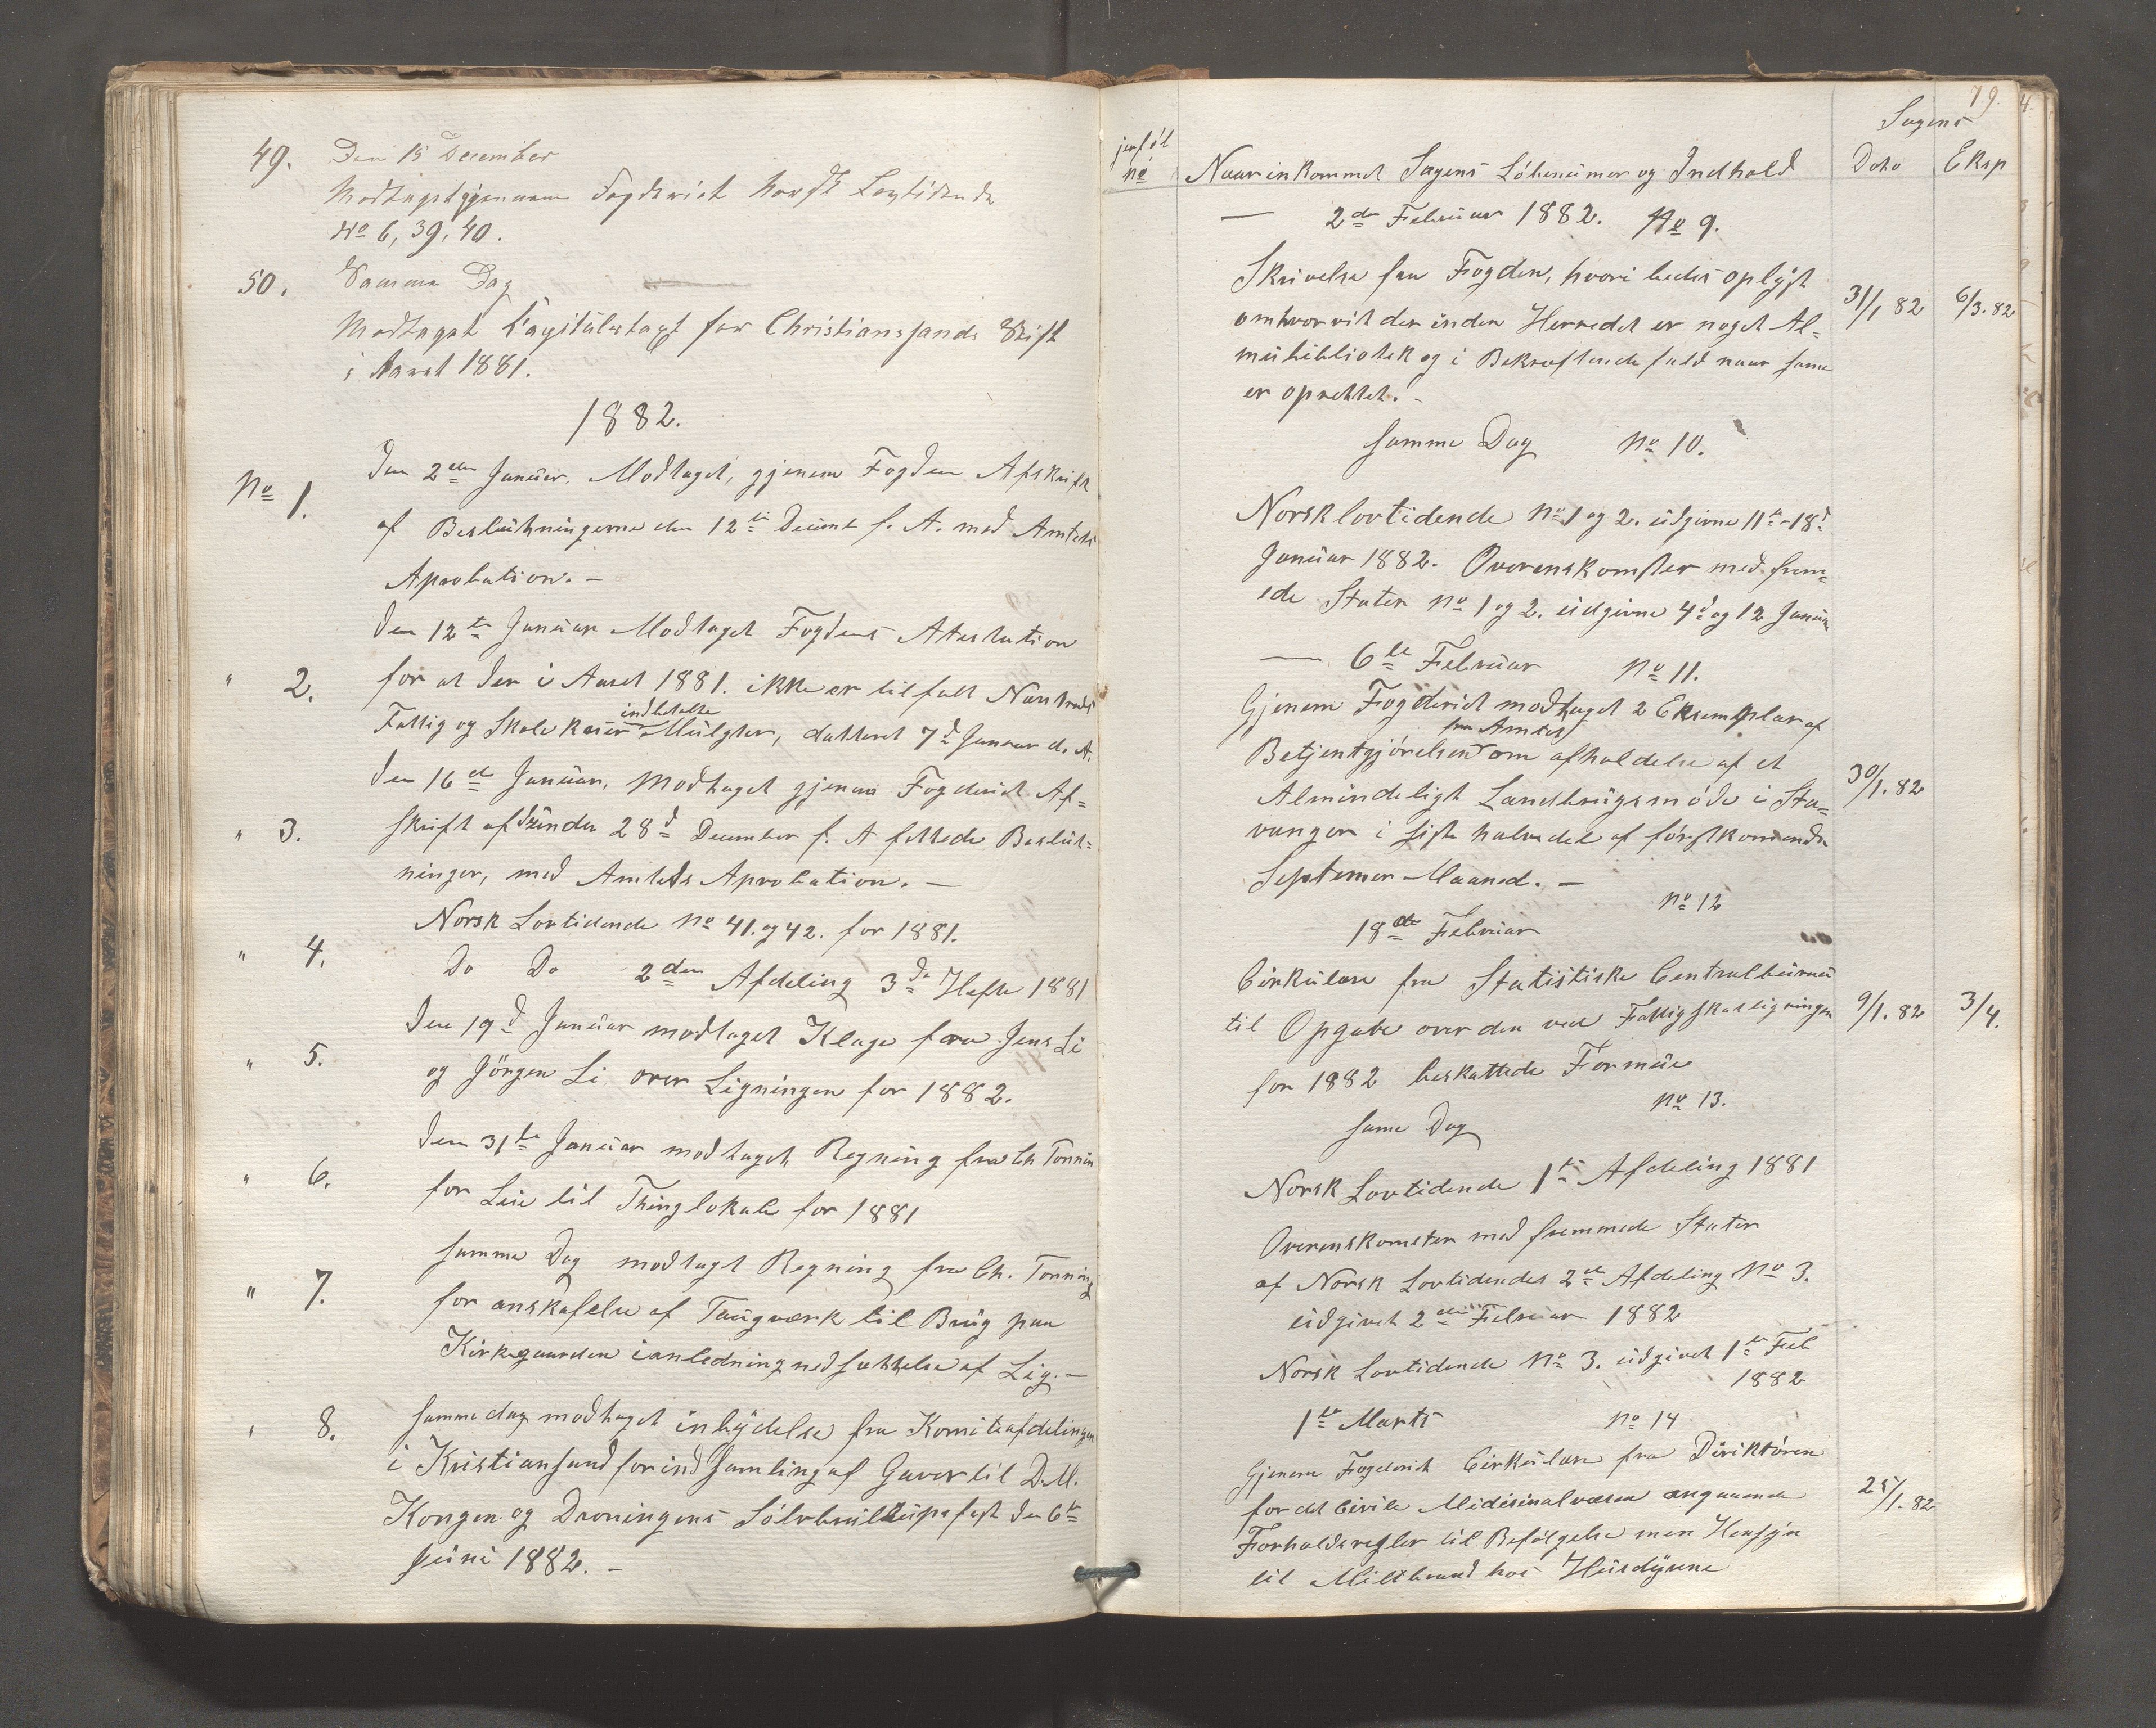 49. Den 15 December
Modtaget gjennem Fogderiet Norsk Lovtidende
No 6, 39, 40.
50. Samme Dag
Modtaget Capitulstagt for Christianssands Stift
i Aaret 1881.
1882.
No 1. Den 2den Januar. Modtaget, gjenem Fogden Afskrift
af Beslutningerne den 12te Decembr f. A. med Amtets
Aprobation. —
" 2. Den 12te Januar Modtaget Fogdens Atestation
for at der i Aaret 1881. ikke er tilfalt Nærstrands
indbetalte
Fattig og Skolekasser Mulgter, datteret 7d Januar d. A.
" 3. Den 16de Januar, Modtaget gjenem Fogderiet Af=
skrift af under 28d December f. A fattede Beslut=
ninger, med Amtets Aprobation. —
" 4. Norsk Lovtidende No 41. og 42. for 1881.
Do Do 2den Afdeling 3de Hefte 1881
" 5. Den 19d Januar modtaget Klage fra Jens Li
og Jörgen Li over Ligningen for 1882.
" 6. Den 31te Januar modtaget Regning fra Ch Tonning
for Leie til Thinglokale for 1881
" 7. Samme Dag modtagt Regning fra Ch. Tonning
for anskafelse af Taugværk til Brug paa
Kirkegaarden i anledning nedsættelse af Lig. —
" 8. Samme dag modtaget inbydelse fra Komiteafdelingen
i Kristiansand for indsamling af Gaver til D.M.
Kongen og Droningens Sölvbrüllupsfest den 6te
Juni 1882. —
79.
No Naar inkommet Sagens Löbenumer og Indhold
Sagens
Dato Eksp
— 2den Februar 1882. No 9.
Skrivelse fra Fogden, hvori bedes oplyst
omhvorvit der inden Herredet er noget Al= 31/1 82 6/3. 82
mübibliotek og i Bekræftende fald naar same
er oprettet. -
samme Dag No 10.
Norsk lovtidende No 1 og 2. udgivne 11te - 18d
Januar 1882. Overenskomster med frem=
ede Stater No 1 og 2. udgivne 4d og 12 Januar
— 6te Februar No 11.
Gjenem Fogderiet modtaget 2 Eksemplar af
fra Amtet
Betjentgjörelsen om afholdelse af et
Almindeligt Landbrugsmöde i Sta= 30/1. 82
vanger i siste halvedel af förstkomende
Septemer Maaned. —
18de Februar No 12
Cirkulære fra Statistiske Centralbureau
til Opgave over den ved Fattigskatligningen 9/1. 82 3/4.
for 1882 beskattede Formue
same Dag No 13.
Norsk Lovtidende 1te Afdeling 1881
Overenskomster med fremmede Stater
af Norsk Lovtidendes 2den Afdeling No 3.
udgivet 2den Februar 1882
Norsk Lovtidende No 3. udgivet 1te Feb
1882
1te Marts No 14
Gjenem Fogderiet Cirkulære fra Diriktören
for det Civile Midisinalvæsen angaaende 25/1. 82
Forholdsregler til Befölgelse men Hensyn
til Miltbrand hos Husdyrene